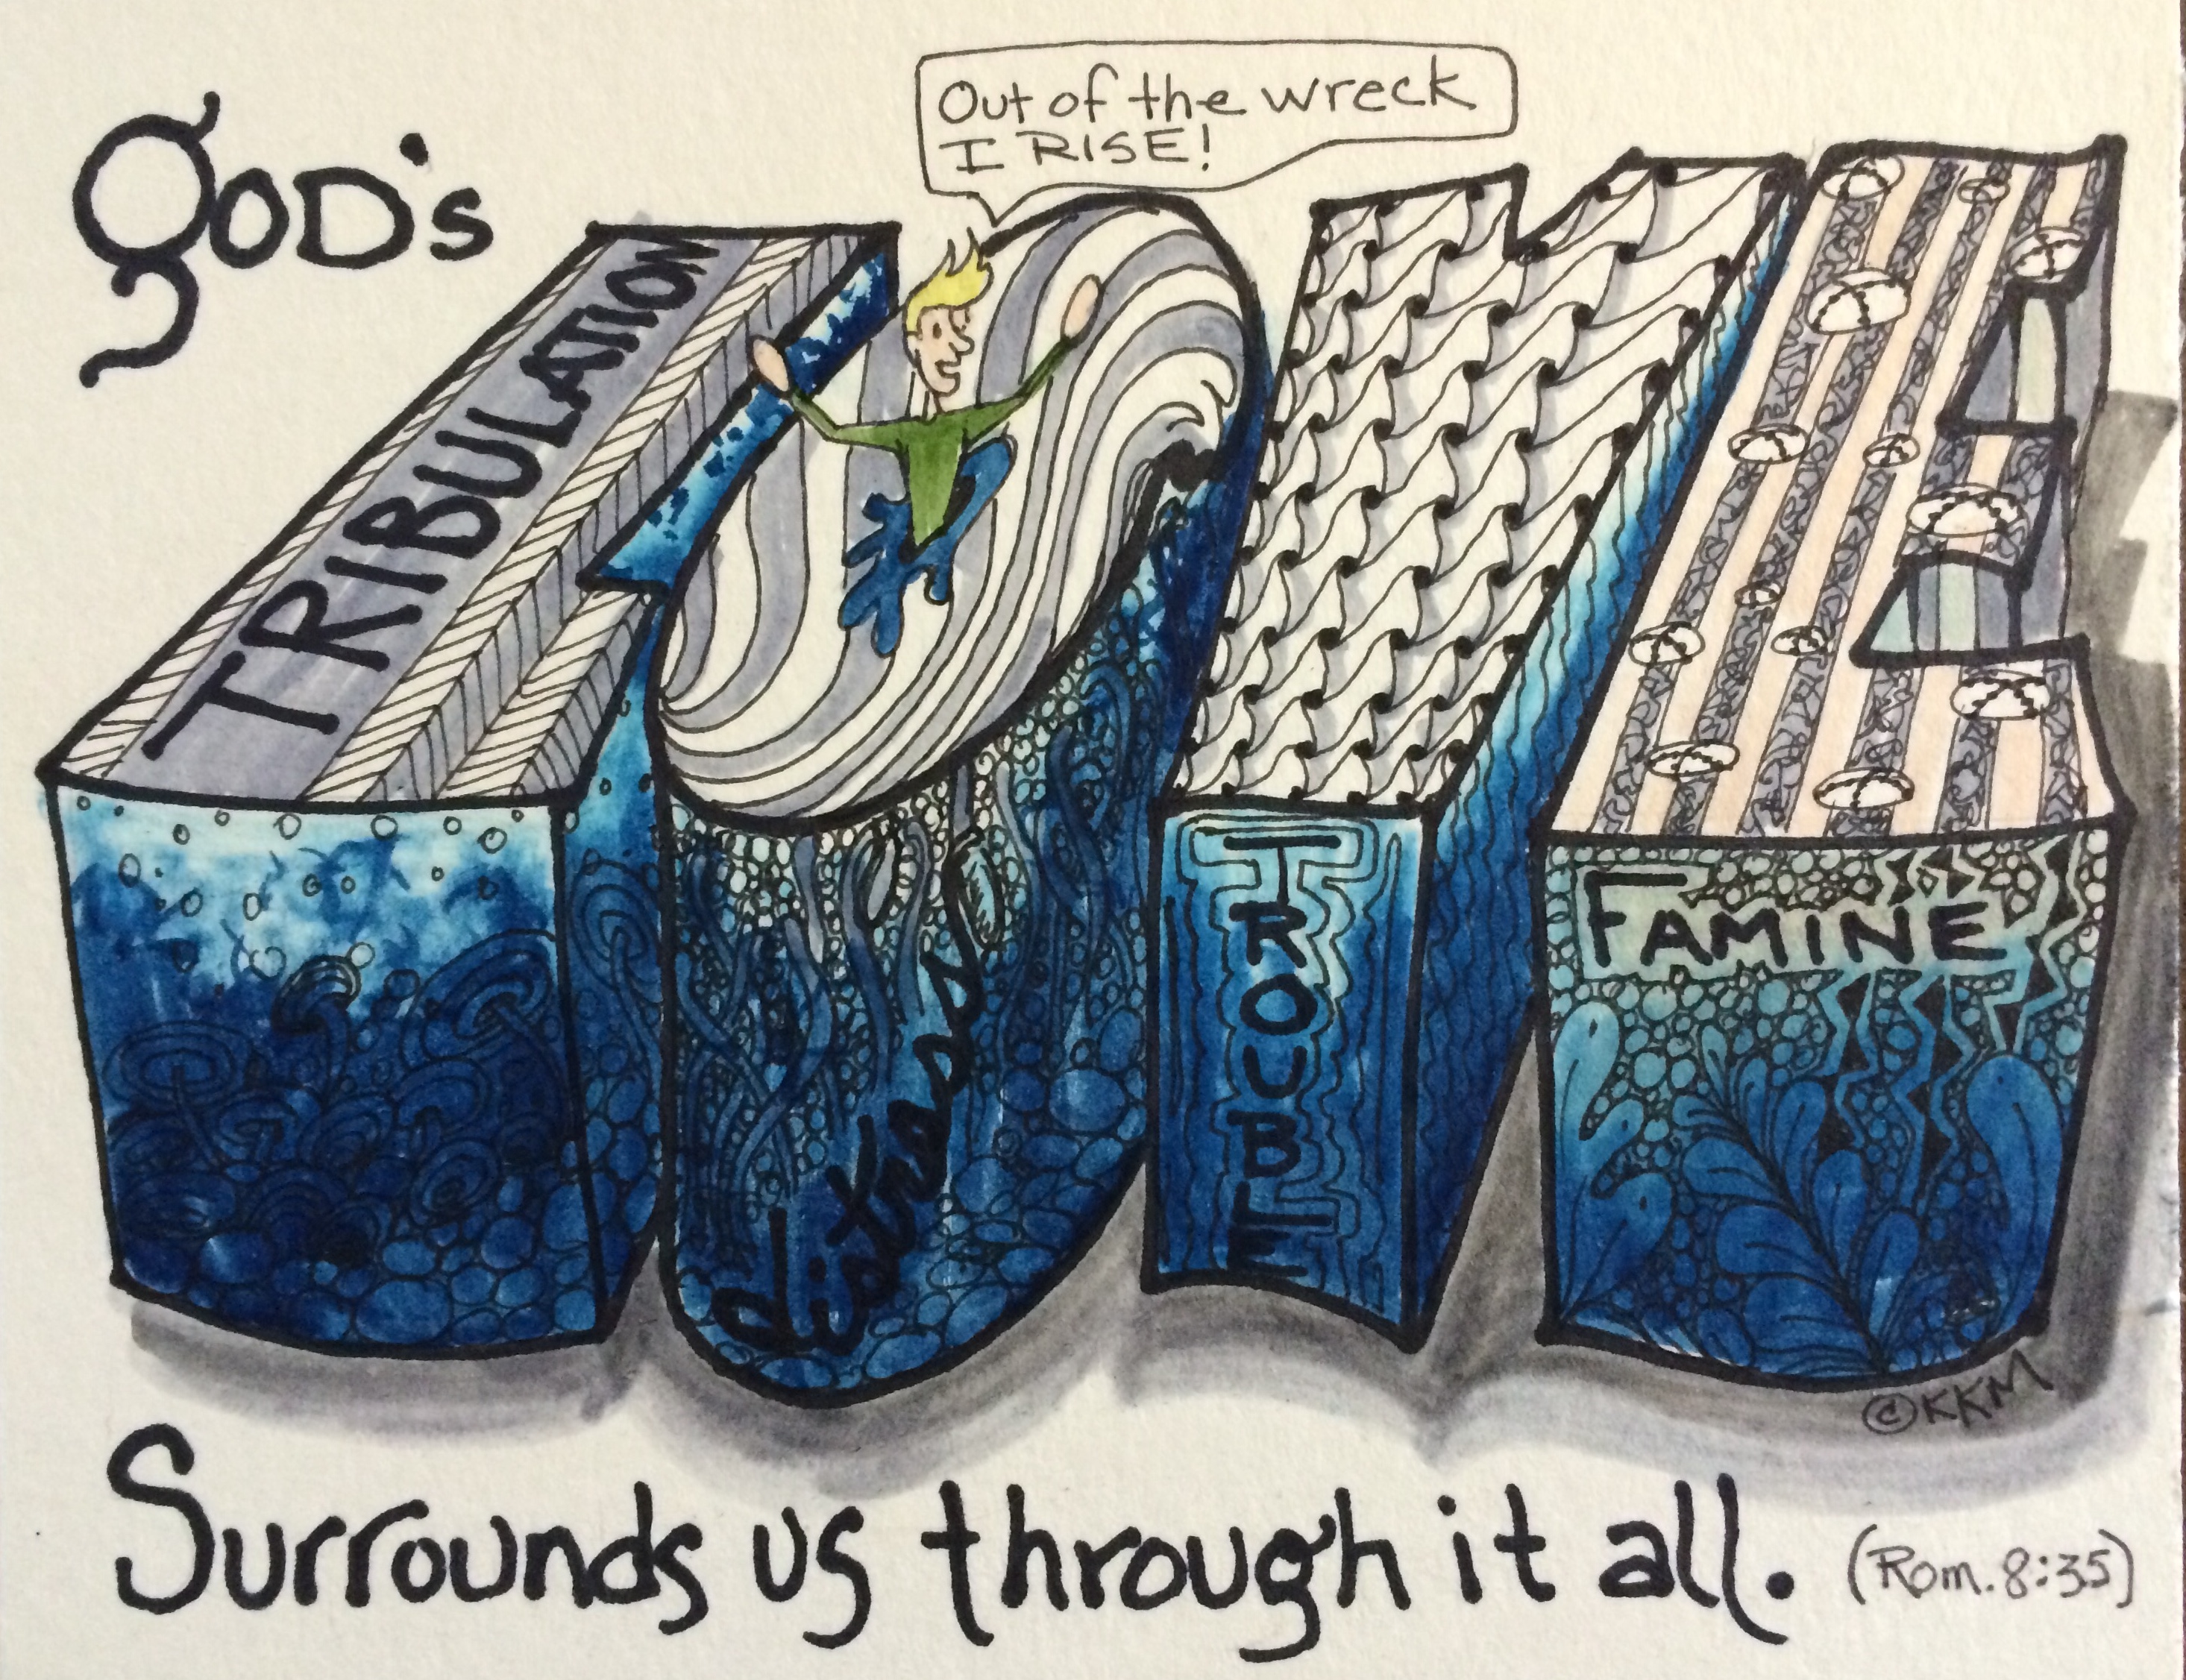 goD's
Out of the wreck
I RISE!
LOVE
TRIBULATION
distress
TROUBLE
FAMINE
©KKM
Surrounds us through it all.
(Rom. 8:35)